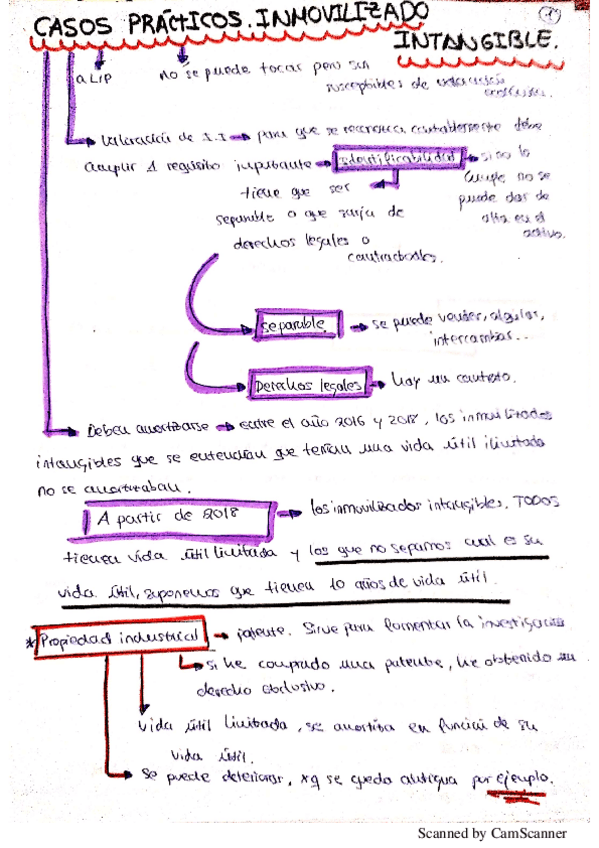 CASOS PRÁCTICOS. INMOVILIZADO
1
INTANGIBLE.
a L/P
no se puede tocar pero son
susceptibles de valoración
económica.
Valoración de I.I → para que se reconozca contablemente debe
cumplir 1 requisito importante → Identificabilidad → si no lo
cumple no se
puede dar de
alta en el
activo.
tiene que ser
separable o que surja de
derechos legales o
contractuales.
separable → se puede vender, alquilar,
intercambiar..
Derechos legales → hay un contrato.
Deben amortizarse → entre el año 2016 y 2018, los inmovilizados
intangibles que se entendían que tenían una vida útil ilimitada
no se amortizaban.
A partir de 2018 → los inmovilizados intangibles, TODOS
tienen vida útil limitada y los que no sepamos cual es su
vida útil, suponemos que tienen 10 años de vida útil.
* Propiedad industrial → patente. Sirve para fomentar la investigación
si he comprado una patente, he obtenido un
derecho exclusivo.
vida útil limitada, se amortiza en función de su
vida útil.
Se puede deteriorar, xq se quedo antigua por ejemplo.
Scanned by CamScanner